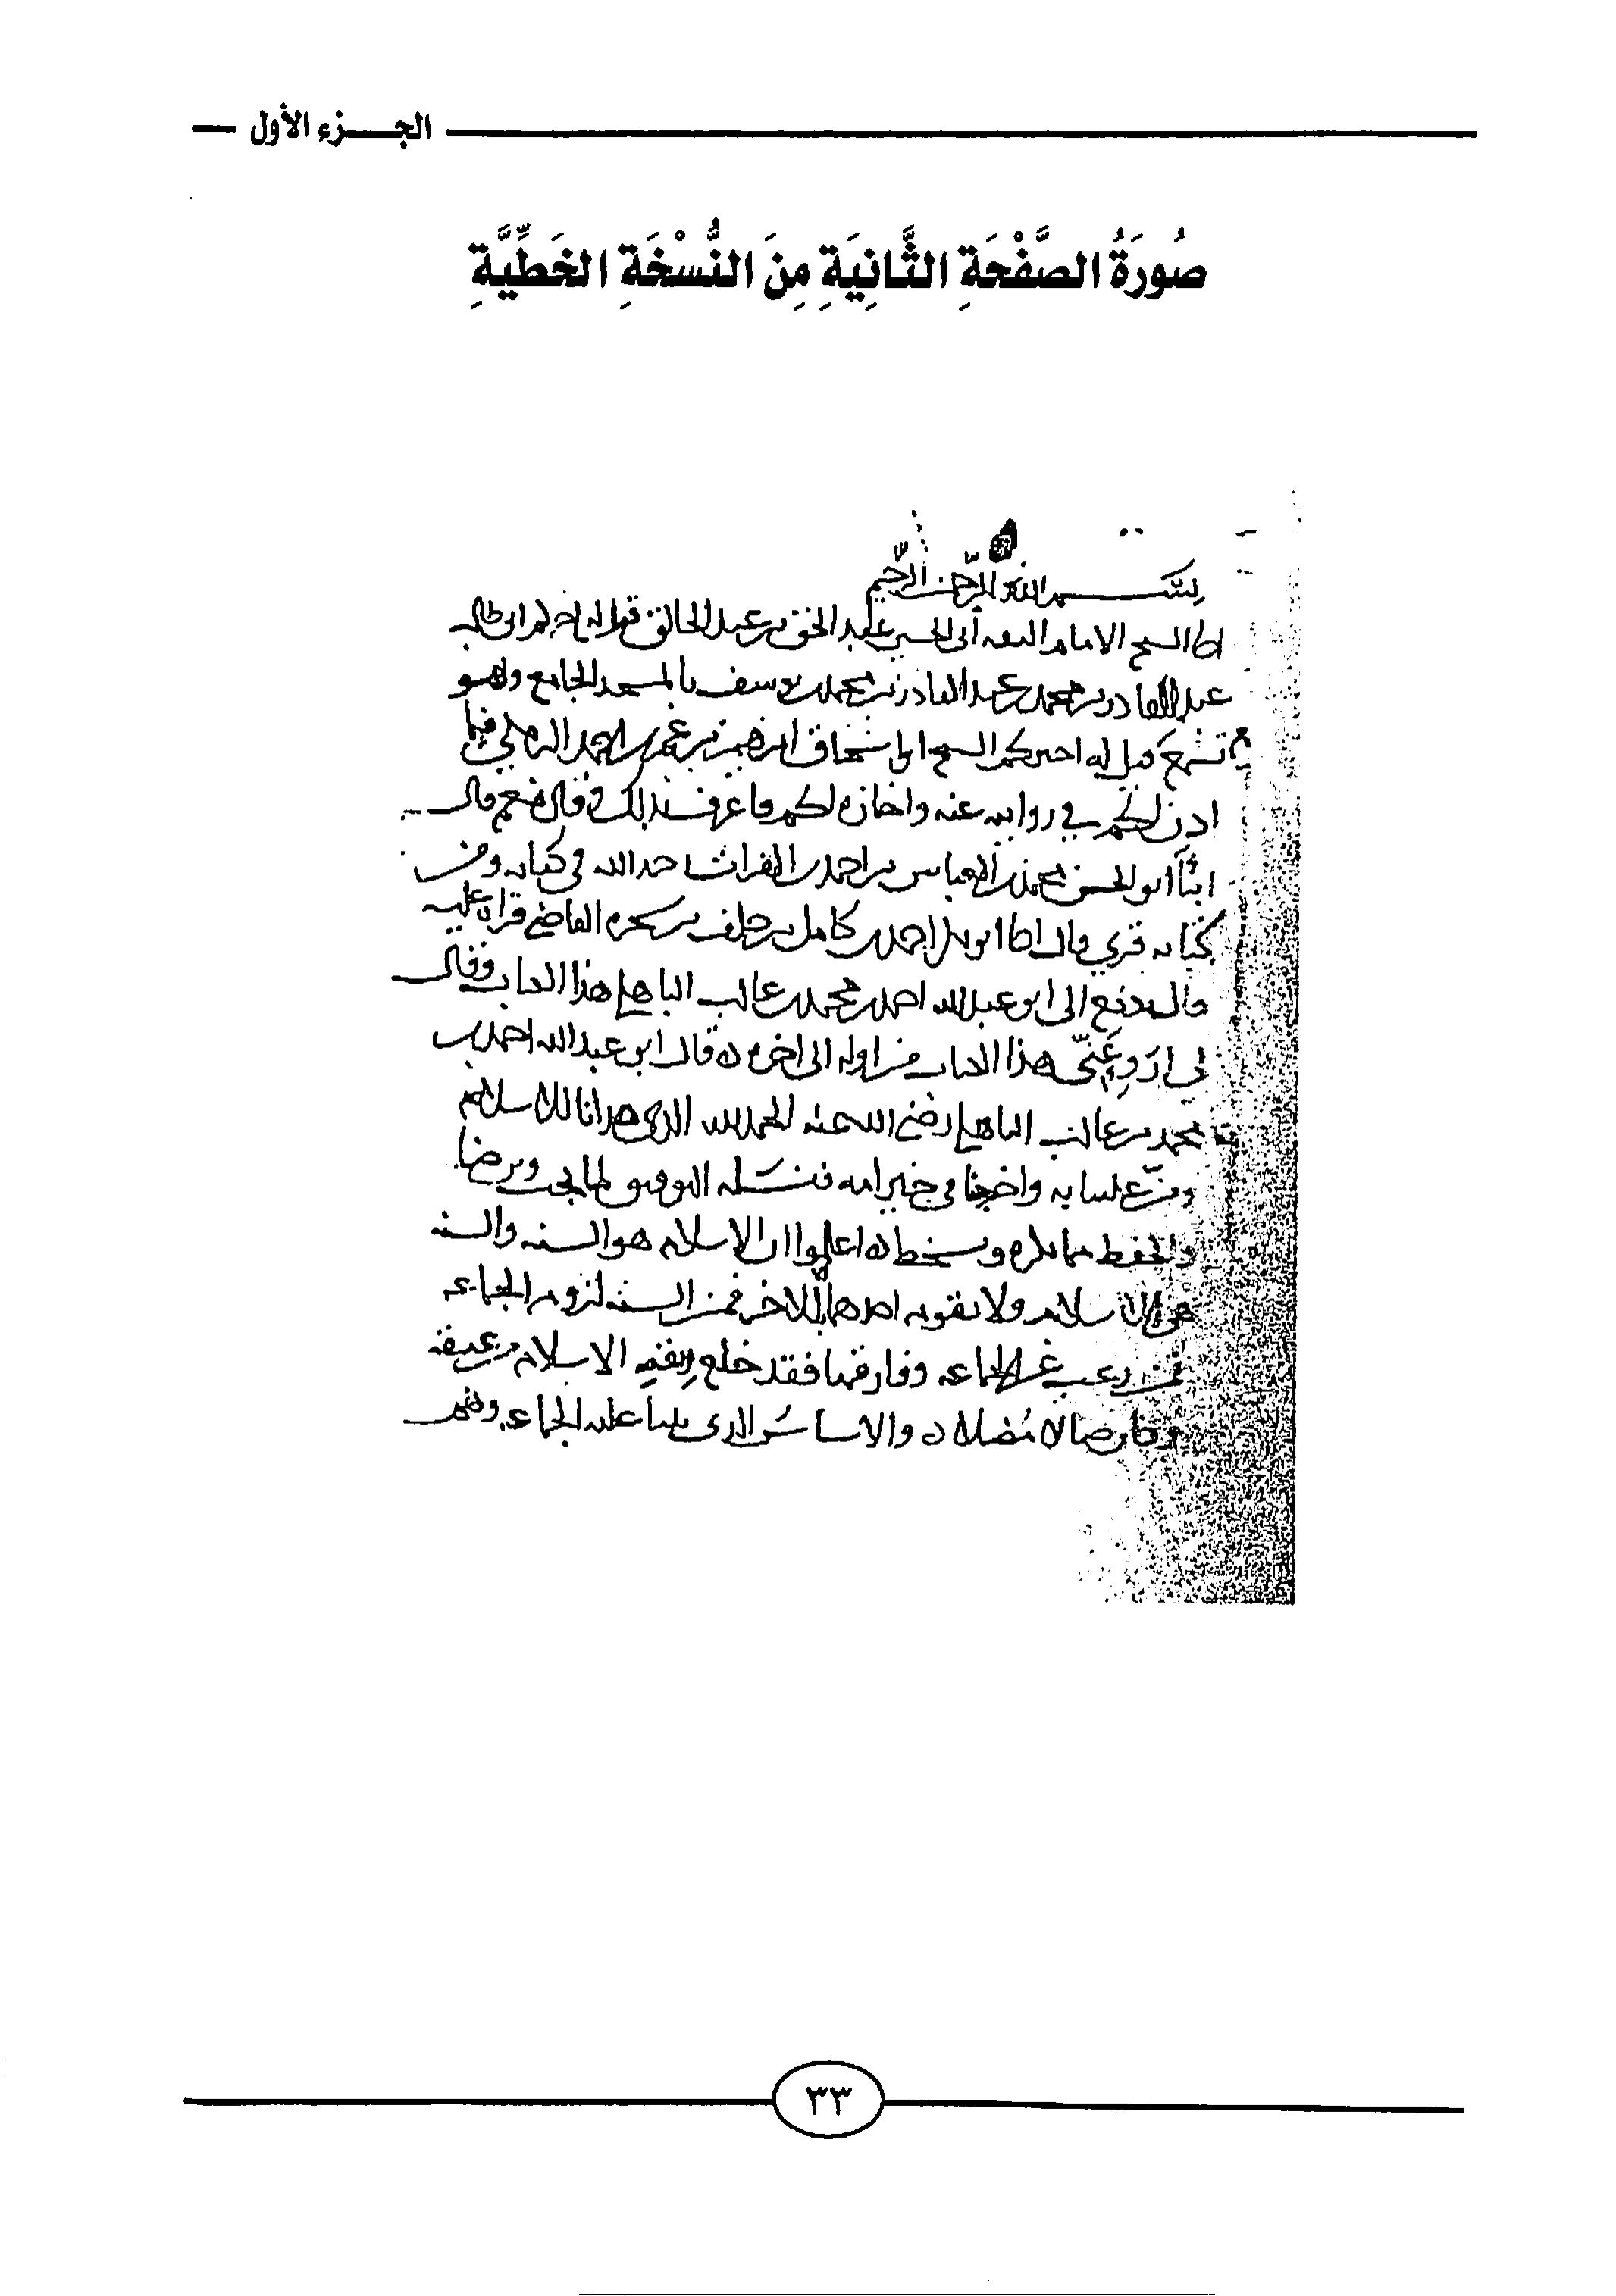 الجـــزء الأول
صُورَةُ الصَّفْحَةِ الثَّانِيَةِ مِنَ النُّسْخَةِ الخَطِّيَّةِ
بسم الله الرحمن الرحيم
الشيخ الامام أبى الحسين عبد الحق بن عبد الخالق
عبد القادر بن محمد بن عبد القادر بن محمد بن يوسف بالمسجد الجامع وهو
تسمع قيل له اخبركم الشيخ ابو اسحاق ابرهيم بن عمر بن احمد البرمكي فيما
اذن لكم في روايته عنه واجازه لكم فاعرف بذلك وقال نعم قال
انبأ ابو الحسن محمد بن العباس بن احمد بن الفرات رحمه الله في كتابه ومن
كتابه قرى قال ابو بكر احمد بن كامل بن خلف بن شجره القاضي قراة عليه
قال دفع الى ابو عبد الله احمد بن محمد بن غالب الباهلي هذا الكتاب وقال
لى ارو عنّى هذا الكتاب من اوله الى اخره قال ابو عبد الله احمد بن
محمد بن غالب الباهلي رضي الله عنه الحمد لله الذي هدانا للاسلام
ومنّ علينا به واخرجنا في خير امه فنسئله التوفيق لما يحب ويرضا
والحفظ مما يكره ويسخط اعلموا ان الاسلام هو السنه والسنه
هي الاسلام ولا يقوم احدهما الا بالاخر فمن السنه لزوم الجماعه
فمن رغب غير الجماعه وفارقها فقد خلع ربقه الاسلام من عنقه
وكان ضالا مضلا والاساس الذي بينا عليه الجماعه وهم
٣٣